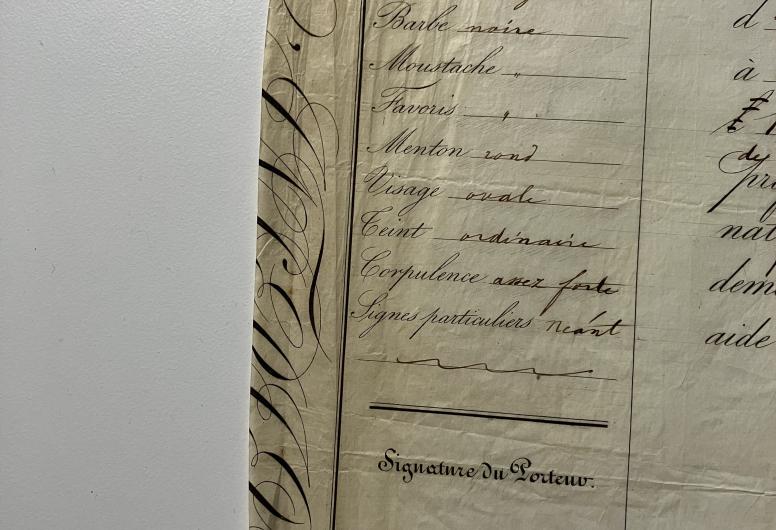 Barbe noire
Moustache "
Favoris "
Menton rond
Visage ovale
Teint ordinaire
Corpulence assez forte
Signes particuliers néant
Signature du Porteur.
d
à
de
pri
nat
dem
aide